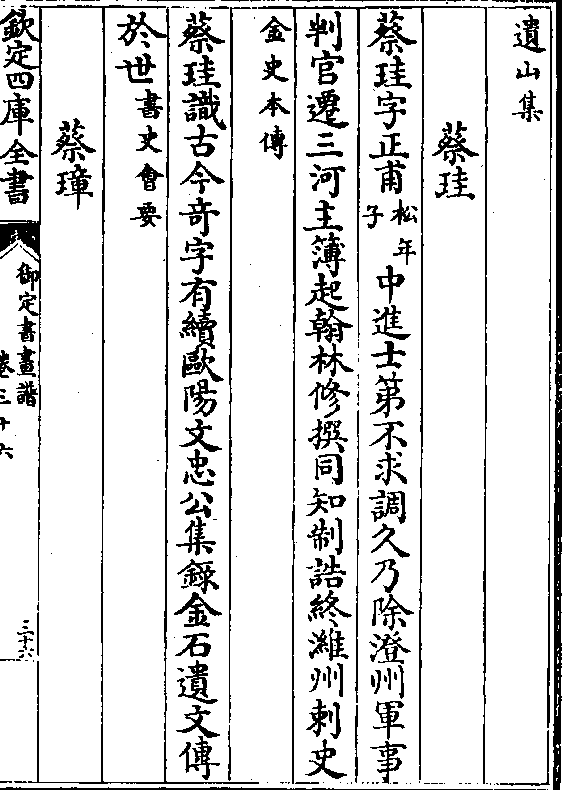 遺山集
蔡珪
蔡珪字正甫松年子中進士第不求調久乃除澄州軍事
判官遷三河主簿起翰林修撰同知制誥終濰州刺史
金史本傳
蔡珪識古今奇字有續歐陽文忠公集錄金石遺文傳
於世書史會要
蔡璋
欽定四庫全書
御定書畫譜
卷三十六
三十六